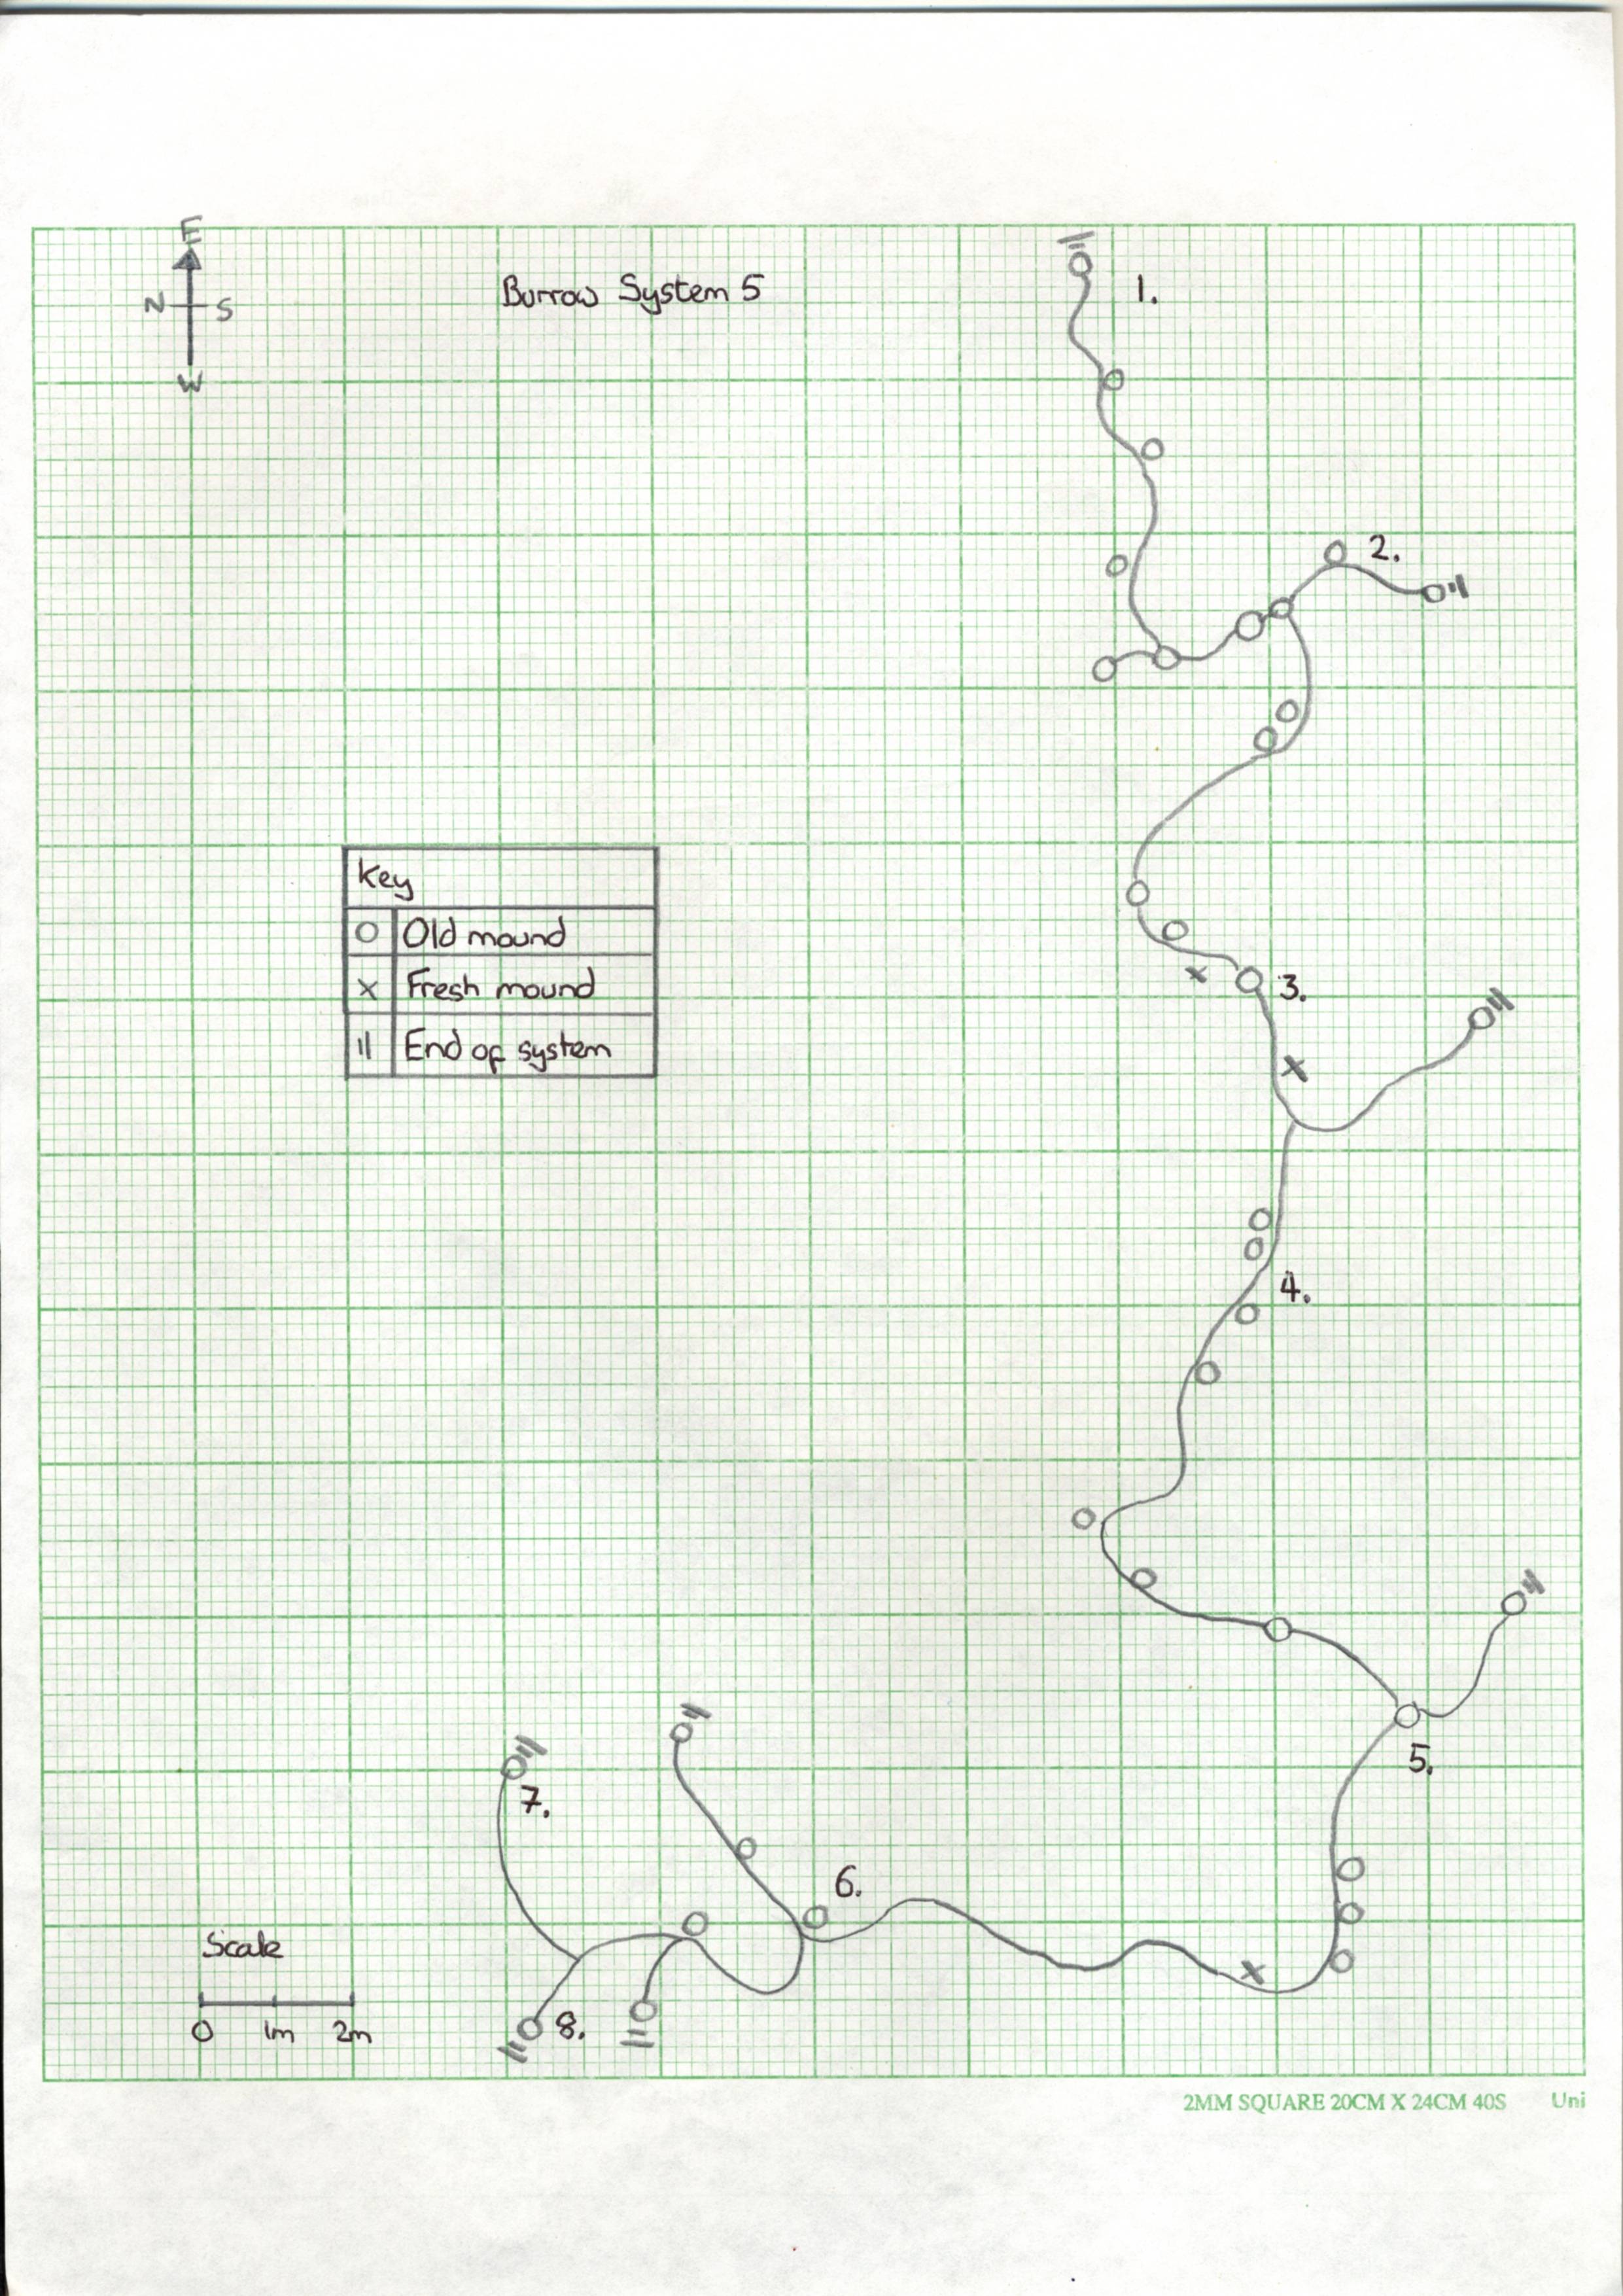 E
N S
W
Burrow System 5
1.
2.
Key
O Old mound
x Fresh mound
|| End of system
3.
4.
5.
6.
7.
8.
Scale
0 1m 2m
2MM SQUARE 20CM X 24CM 40S Uni